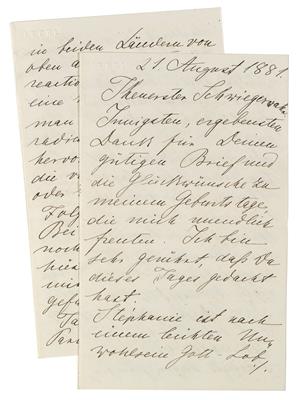 in beiden Ländern von
oben a
reactio
eine
man
radic
hervo
die v
oder
Folg
Bei
noch
hies
mi
gefü
Ta
Par
21. August 1881.
Theuerster Schwiegervater
Innigsten, ergebensten
Dank für Deinen
gütigen Brief und
die Glückwünsche zu
meinem Geburtstage,
die mich unendlich
freuten. Ich bin
sehr gerührt, daß Du
dieses Tages gedacht
hast.
Stephanie ist nach
einem leichten Un-
wohlsein Gott-Lob,